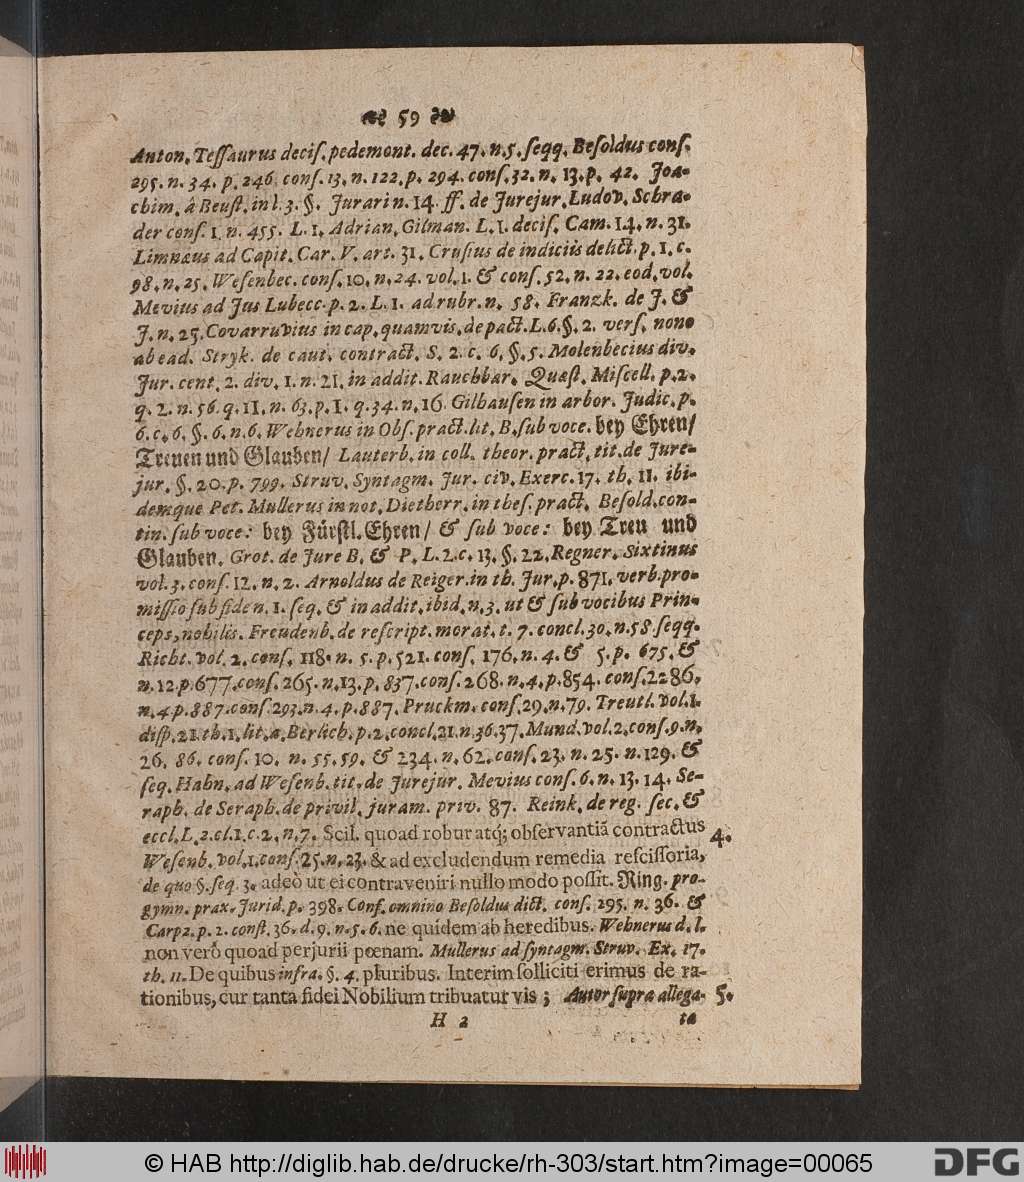 59
Anton. Tessaurus decis. pedemont. dec. 47. n. 5. seqq. Besoldus cons.
295. n. 34. p. 246. cons. 13. n. 122. p. 294. cons. 32. n. 13. p. 42. Joa-
chim. â Beust. in l. 3. §. Jurari n. 14. ff. de Jurejur. Ludov. Schra-
der cons. 1. n. 455. L. 1. Adrian. Gilman. L. 1. decis. Cam. 14. n. 31.
Limnæus ad Capit. Car. V. art. 31. Crusius de indiciis delict. p. 1. c.
98. n. 25. Wesenbec. cons. 10. n. 24. vol. 1. & cons. 52. n. 22. eod. vol.
Mevius ad Jus Lubecc. p. 2. L. 1. ad rubr. n. 58. Franzk. de J. &
J. n. 25. Covarruvius in cap. quamvis. de pact. L. 6. §. 2. vers. non
ab ead. Stryk. de caut. contract. S. 2. c. 6. §. 5. Molenbecius div.
Jur. cent. 2. div. 1. n. 21. in addit. Rauchbar. Quæst. Miscell. p. 2.
q. 2. n. 56. q. 11. n. 63. p. 1. q. 34. n. 16. Gilhausen in arbor. Judic. p.
6. c. 6. §. 6. n. 6. Wehnerus in Obs. pract. lit. B. sub voce. bey Ehren/
Treuen und Glauben/ Lauterb. in coll. theor. pract. tit. de Jure-
jur. §. 20. p. 799. Struv. Syntagm. Jur. civ. Exerc. 17. th. 11. ibi-
demque Pet. Mullerus in not. Dietherr. in thes. pract. Besold. con-
tin. sub voce: bey Fürstl. Ehren/ & sub voce: bey Treu und
Glauben. Grot. de Jure B. & P. L. 2. c. 13. §. 22. Regner. Sixtinus
vol. 3. cons. 12. n. 2. Arnoldus de Reiger. in th. Jur. p. 871. verb. pro-
missio sub fide n. 1. seq. & in addit. ibid. n. 3. ut & sub vocibus Prin-
ceps, nobilis. Freudenb. de rescript. morat. t. 7. concl. 30. n. 58. seqq.
Richt. vol. 2. cons. 118. n. 5. p. 521. cons. 176. n. 4. & 5. p. 675. &
n. 12. p. 677. cons. 265. n. 13. p. 837. cons. 268. n. 4. p. 854. cons. 2286.
n. 4 p. 887. cons. 293. n. 4. p. 887. Pruckm. cons. 29. n. 79. Treutl. vol. 1.
disp. 21. th. 1. lit. a. Berlich. p. 2. concl. 21. n. 36. 37. Mund. vol. 2. cons. 9. n.
26. 86. cons. 10. n. 55. 59. & 234. n. 62. cons. 23. n. 25. n. 129. &
seq. Hahn. ad Wesenb. tit. de Jurejur. Mevius cons. 6. n. 13. 14. Se-
raph. de Seraph. de privil. juram. priv. 87. Reink. de reg. sec. &
eccl. L. 2. cl. 1. c. 2. n. 7. Scil. quoad robur atq; observantiã contractus 4.
Wesenb. vol. 1. cons. 25. n. 23. & ad excludendum remedia rescissoria,
de quo §. seq. 3. adeò ut ei contraveniri nullo modo possit. Ring. pro-
gymn. prax. Jurid. p. 398. Conf. omnino Besoldus dict. cons. 295. n. 36. &
Carpz. p. 2. const. 36. d. 9. n. 5. 6. ne quidem ab heredibus. Wehnerus d. l.
non verò quoad perjurii pœnam. Mullerus ad syntagm. Struv. Ex. 17.
th. 11. De quibus infra. §. 4. pluribus. Interim solliciti erimus de ra-
tionibus, cur tanta fidei Nobilium tribuatur vis; Autor supra allega- 5.
H 2 ta
© HAB http://diglib.hab.de/drucke/rh-303/start.htm?image=00065
DFG